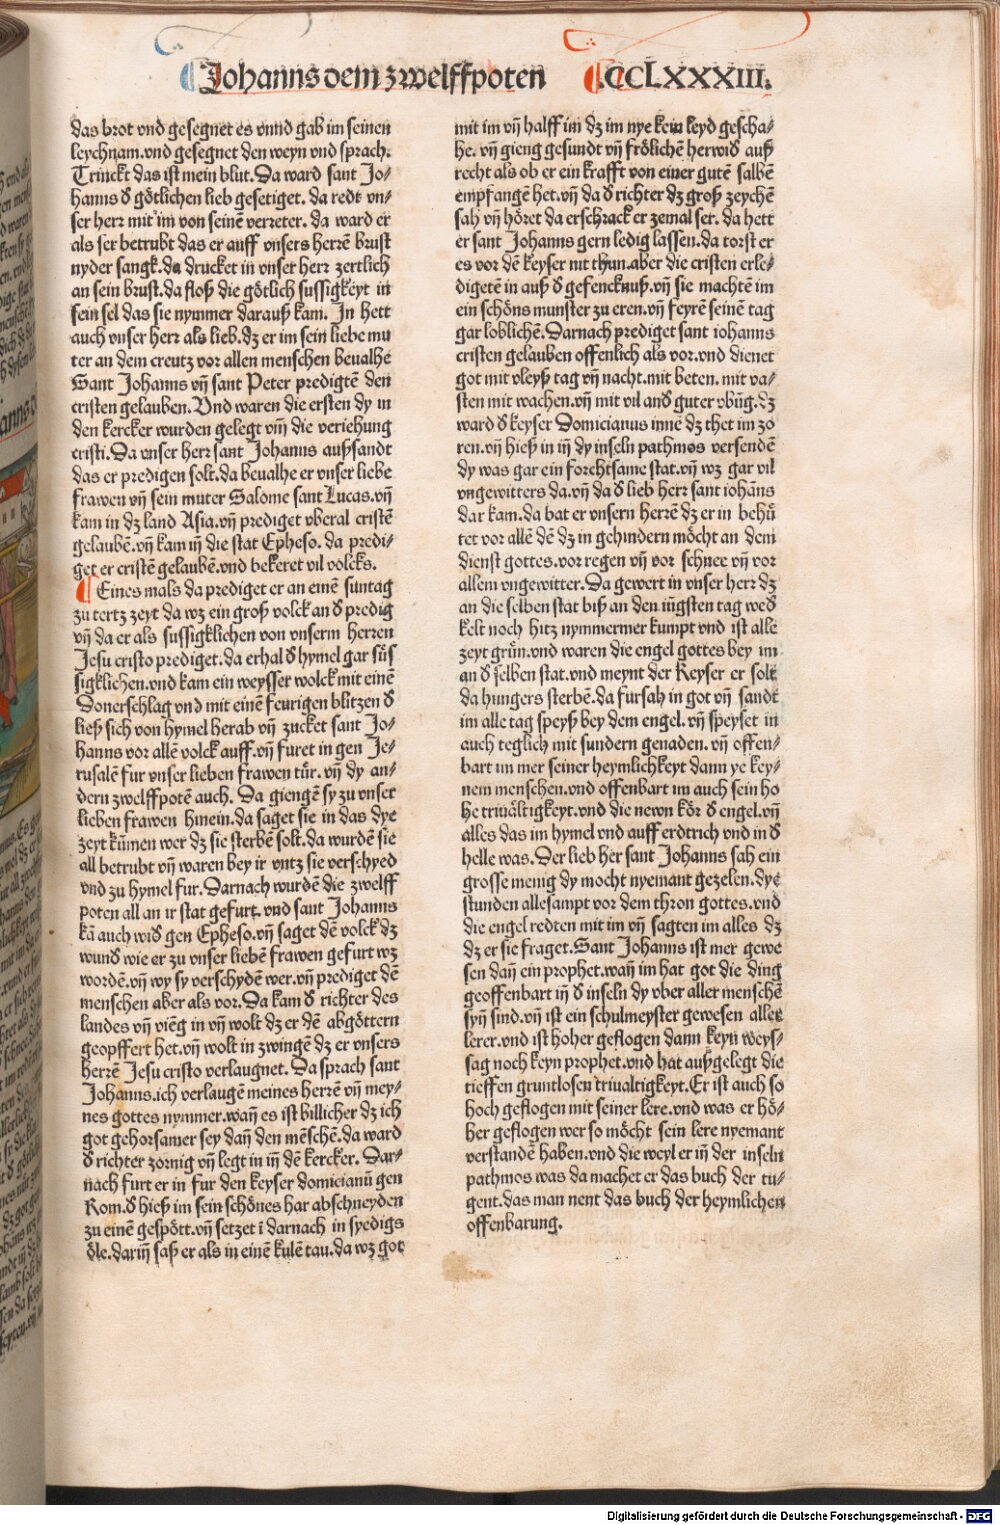 Johanns dem zwelffpoten .CCLXXXIII.
das brot vnd gesegnet es vnnd gab im seinen
leychnam.vnd gesegnet den weyn vnd sprach.
Trinckt das ist mein blut. Da ward sant Jo⸗
hanns d̕ götlichen lieb gesetiget. da redt vn⸗
ser herr mit im von seinē verreter. da ward er
als ser betrubt das er auff vnsers herrē brust
nyder sangk.da drucket in vnser herr zertlich
an sein brust.da floß die götlich sussigkeyt in
sein sel das sie nymmer darauß kam. In hett
auch vnser herr als lieb.dz er im sein liebe mu
ter an dem creutz vor allen menschen beualhe
Sant Johanns vn̄ sant Peter predigtē den
cristen gelauben. Vnd waren die ersten dy in
den kercker wurden gelegt vm̄ die veriehung
cristi. Da vnser herr sant Johanns außsandt
das er predigen solt.da beualhe er vnser liebe
frawen vn̄ sein muter Salome sant Lucas.vn̄
kam in dz land Asia.vn̄ prediget vberal cristē
gelaubē.vn̄ kam in̄ die stat Epheso. da predi⸗
get er cristē gelaubē.vnd bekeret vil volcks.
Eines mals da prediget er an einē suntag
zu tertz zeyt da wz ein groß volck an d̕ predig
vn̄ da er als sussigklichen von vnserm herren
Jesu cristo prediget.da erhal d̕ hymel gar süs
sigklichen.vnd kam ein weysser wolck mit einē
Donerschlag vnd mit einē feurigen blitzen d̕
ließ sich von hymel herab vn̄ zucket sant Jo⸗
hanns vor allē volck auff.vn̄ furet in gen Je⸗
rusalē fur vnser lieben frawen tür. vn̄ dy an⸗
dern zwelffpotē auch. Da giengē sy zu vnser
lieben frawen hinein.da saget sie in das dye
zeyt kūmen wer dz sie sterbē solt.da wurdē sie
all betrubt vn̄ waren bey ir vntz sie verschyed
vnd zu hymel fur. Darnach wurdē die zwelff
poten all an ir stat gefurt. vnd sant Johanns
kā auch wid̕ gen Epheso.vn̄ saget dē volck dz
wund̕ wie er zu vnser liebē frawen gefurt wz
wordē.vn̄ wy sy verschydē wer.vn̄ prediget dē
menschen aber als vor. Da kam d̕ richter des
landes vn̄ viēg in vn̄ wolt dz er dē abgöttern
geopffert het.vn̄ wolt in zwingē dz er vnsers
herrē Jesu cristo verlaugnet. Da sprach sant
Johanns.ich verlaugē meines herrē vn̄ mey⸗
nes gottes nymmer.wan̄ es ist billicher dz ich
got gehorsamer sey dan̄ den mēschē.da ward
d̕ richter zornig vn̄ legt in in̄ dē kercker. Dar⸗
nach furt er in fur den keyser domicianū gen
Rom.d̕ hieß im sein schönes har abschneyden
zu einē gespött.vn̄ setzet ī darnach in syedigs
öle.darin̄ saß er als in einē kulē tau.da wz got
mit im vn̄ halff im dz im nye kein leyd gescha⸗
he. vn̄ gieng gesundt vn̄ frölichē herwid̕ auß
recht als ob er ein krafft von einer gutē salbē
empfangē het.vn̄ da d̕ richter dz groß zeychē
sah vn̄ höret da erschrack er zemal ser. da hett
er sant Johanns gern ledig lassen.da torst er
es vor dē keyser nit thun.aber die cristen erle⸗
digetē in auß d̕ gefencknuß.vn̄ sie machtē im
ein schöns munster zu eren.vn̄ feyrē seinē tag
gar loblichē. Darnach prediget sant iohanns
cristen gelauben offenlich als vor.vnd dienet
got mit vleyß tag vn̄ nacht.mit beten. mit va⸗
sten mit wachen.vn̄ mit vil and̕ guter vbūg.Dz
ward d̕ keyser Domicianus innē dz thet im zo
ren.vn̄ hieß in in̄ dy inseln pathmos versendē
dy was gar ein forchtsame stat.vn̄ wz gar vil
vngewitters da.vn̄ da d̕ lieb herr sant iohāns
dar kam.da bat er vnsern herrē dz er in behü
tet vor allē dē dz in gehindern möcht an dem
dienst gottes.vor regen vn̄ vor schnee vn̄ vor
allem vngewitter. Da gewert in vnser herr dz
an die selben stat biß an den iūgsten tag wed̕
kelt noch hitz nymmermer kumpt vnd ist alle
zeyt grün.vnd waren die engel gottes bey im
an d̕ selben stat.vnd meynt der Keyser er solt
da hungers sterbē.da fursah in got vn̄ sandt
im alle tag speyß bey dem engel. vn̄ speyset in
auch teglich mit sundern genaden. vn̄ offen⸗
bart im mer seiner heymlichkeyt dann ye key⸗
nem menschen.vnd offenbart im auch sein ho
he triuältigkeyt.vnd die newn kör d̕ engel.vn̄
alles das im hymel vnd auff erdtrich vnd in d̕
helle was. Der lieb her sant Johanns sah ein
grosse menig dy mocht nyemant gezelen.dye
stunden allesampt vor dem thron gottes.vnd
die engel redten mit im vn̄ sagten im alles dz
dz er sie fraget. Sant Johanns ist mer gewe
sen dan̄ ein prophet.wan̄ im hat got die ding
geoffenbart in̄ d̕ inseln dy vber aller menschē
syn̄ sind.vn̄ ist ein schulmeyster gewesen aller
lerer.vnd ist hoher geflogen dann keyn weys⸗
sag noch keyn prophet.vnd hat außgelegt die
tieffen gruntlosen triualtigkeyt. Er ist auch so
hoch geflogen mit seiner lere.vnd was er hö⸗
her geflogen wer so möcht sein lere nyemant
verstandē haben.vnd die weyl er in̄ der inseln
pathmos was da machet er das buch der tu⸗
gent.das man nent das buch der heymlichen
offenbarung.
Digitalisierung gefördert durch die Deutsche Forschungsgemeinschaft - DFG